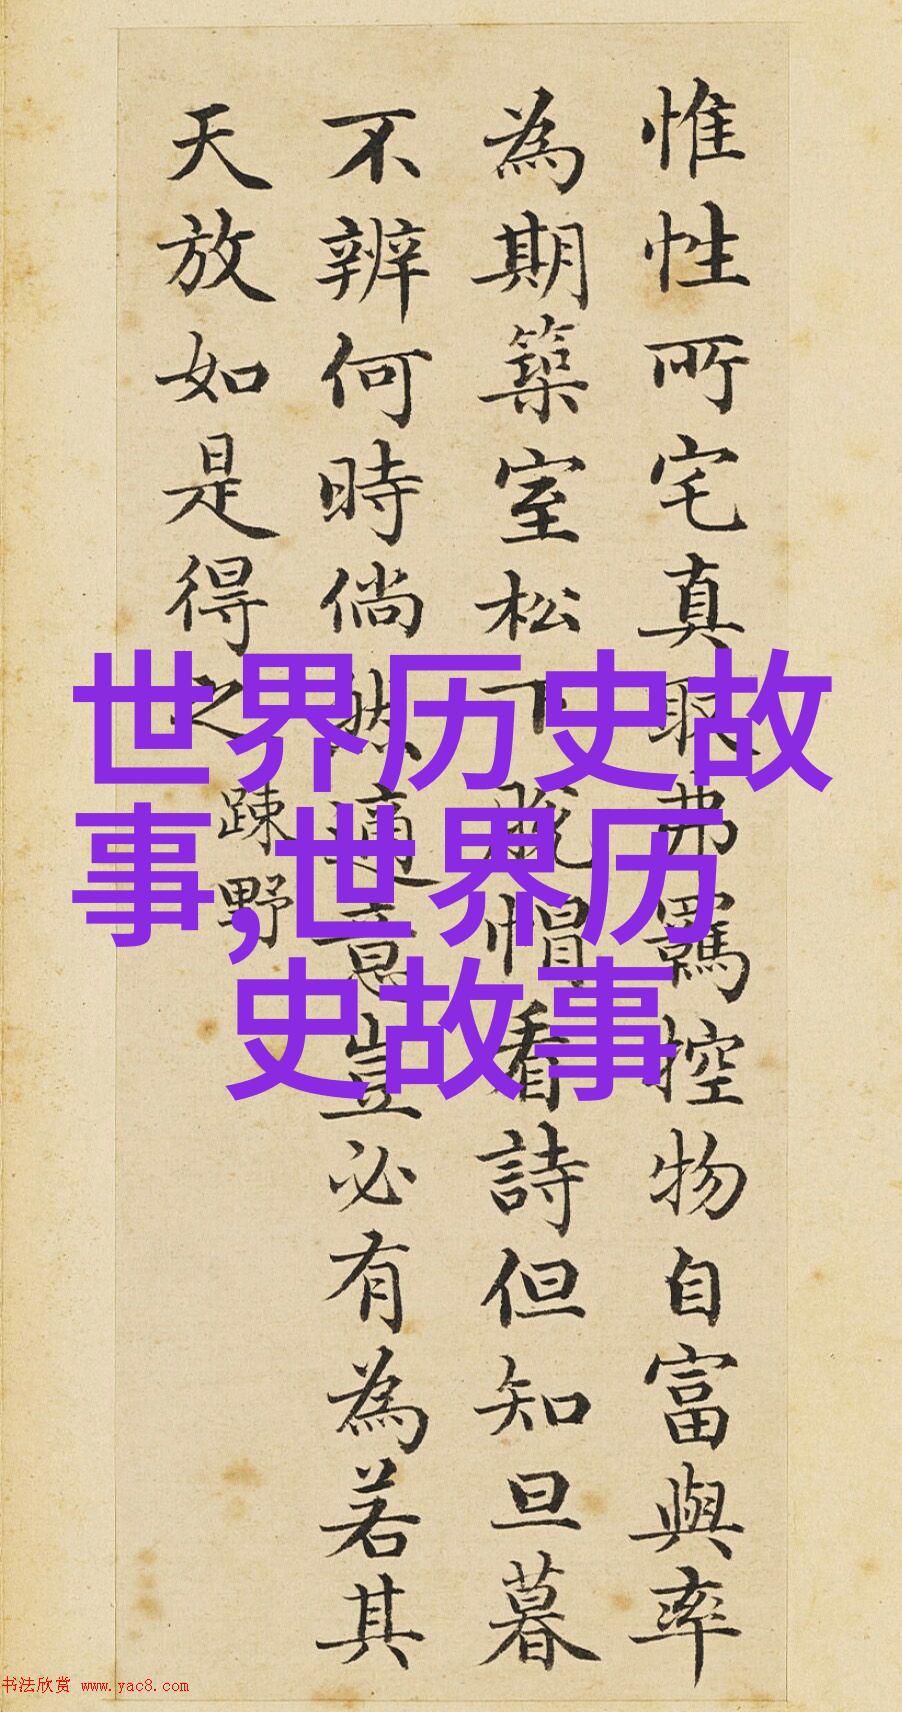 惟性所宅真取弗羈控物自富與率
為期築室松下脫帽看詩但知旦暮
不辨何時倘然適意豈必有為若其
天放如是得之
疎野
世界历史故
事,世界历
史故事
书法欣赏 www.yac8.com